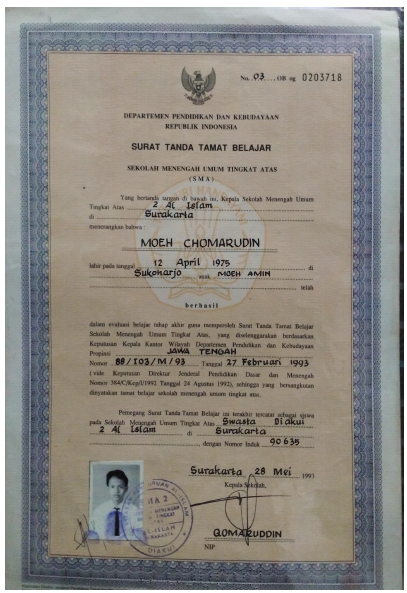 No. 03 ..., OB og 0203718
DEPARTEMEN PENDIDIKAN DAN KEBUDAYAAN
REPUBLIK INDONESIA
SURAT TANDA TAMAT BELAJAR
SEKOLAH MENENGAH UMUM TINGKAT ATAS
(SMA)
Yang bertanda tangan di bawah ini, Kepala Sekolah Menengah Umum
Tingkat Atas 2 Al Islam
di Surakarta
menerangkan bahwa :
MOEH CHOMARUDIN
lahir pada tanggal 12 April 1975 di
Sukoharjo anak MOEH AMIN
telah
berhasil
dalam evaluasi belajar tahap akhir guna memperoleh Surat Tanda Tamat Belajar
Sekolah Menengah Umum Tingkat Atas, yang diselenggarakan berdasarkan
Keputusan Kepala Kantor Wilayah Departemen Pendidikan dan Kebudayaan
Propinsi JAWA TENGAH
Nomor 88/I03/M/93 Tanggal 27 Februari 1993
( vide Keputusan Direktur Jenderal Pendidikan Dasar dan Menengah
Nomor 384/C/Kep/I/1992 Tanggal 24 Agustus 1992), sehingga yang bersangkutan
dinyatakan tamat belajar sekolah menengah umum tingkat atas.
Pemegang Surat Tanda Tamat Belajar ini terakhir tercatat sebagai siswa
pada Sekolah Menengah Umum Tingkat Atas Swasta Diakui
2 Al Islam di Surakarta
, dengan Nomor Induk 90635
Surakarta, 28 Mei 1993
Kepala Sekolah,
SMA 2
AL-ISLAM
SURAKARTA
DIAKUI
QOMARUDDIN
NIP